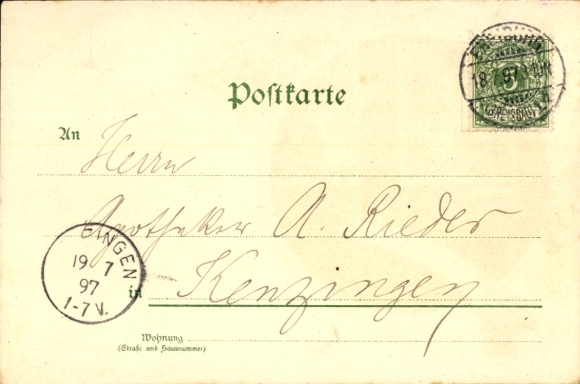 Postkarte
FREIBURG
18 7 97
5
REICHSPOST
An
Herrn
Apotheker A. Rieder
in Kenzingen
INGEN
19 7
97
1-7 V.
Wohnung
(Straße und Hausnummer)